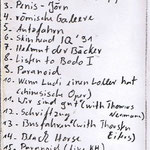 3. Penis-Jörn
4. römische Galeere
5. Autofahrn
6. Skinhead IQ '91
7. Helmut der Bäcker
8. Listen to Bodo I
9. Paranoid
10. Wenn Ludi einen Löher hat
(chinesische Oper)
11. Wir sind gut (with Thomas
Hermann)
12. Schriftzug
13. Busfahren (with Thorsten
Eikers)
14. Black Horse
15. Paranoid (live KH)